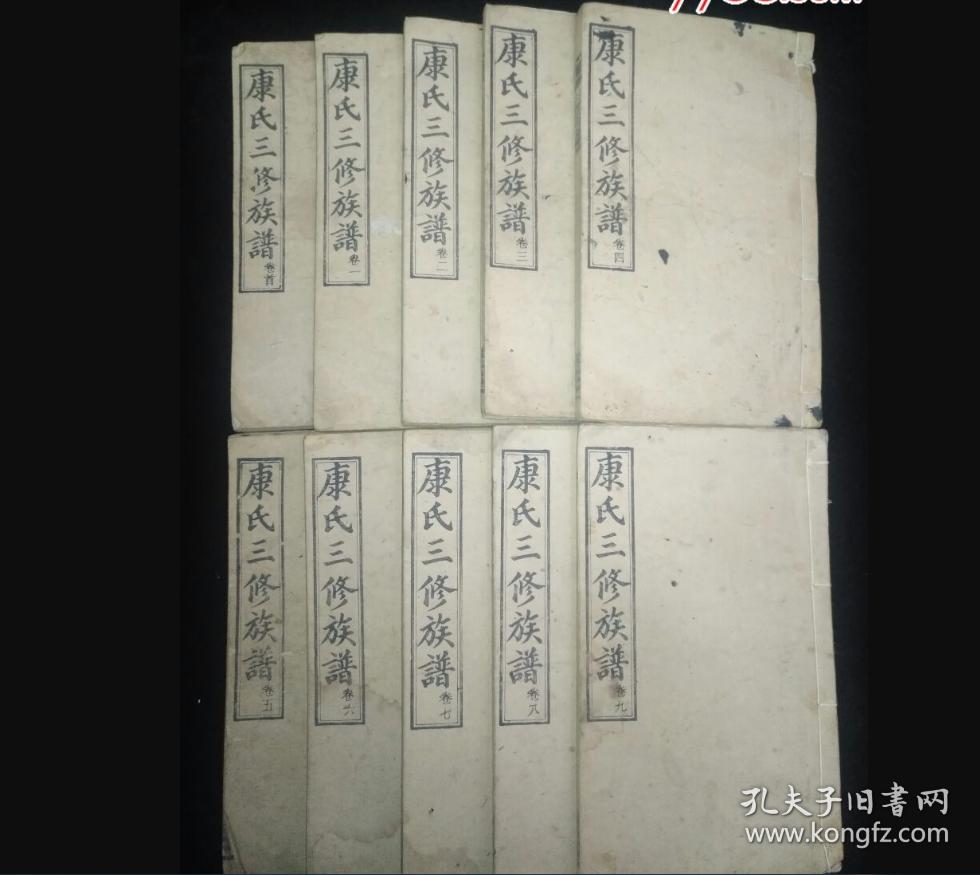 康氏三修族譜 卷首
康氏三修族譜 卷一
康氏三修族譜 卷二
康氏三修族譜 卷三
康氏三修族譜 卷四
康氏三修族譜 卷五
康氏三修族譜 卷六
康氏三修族譜 卷七
康氏三修族譜 卷八
康氏三修族譜 卷九
孔夫子旧書网
www.kongfz.com